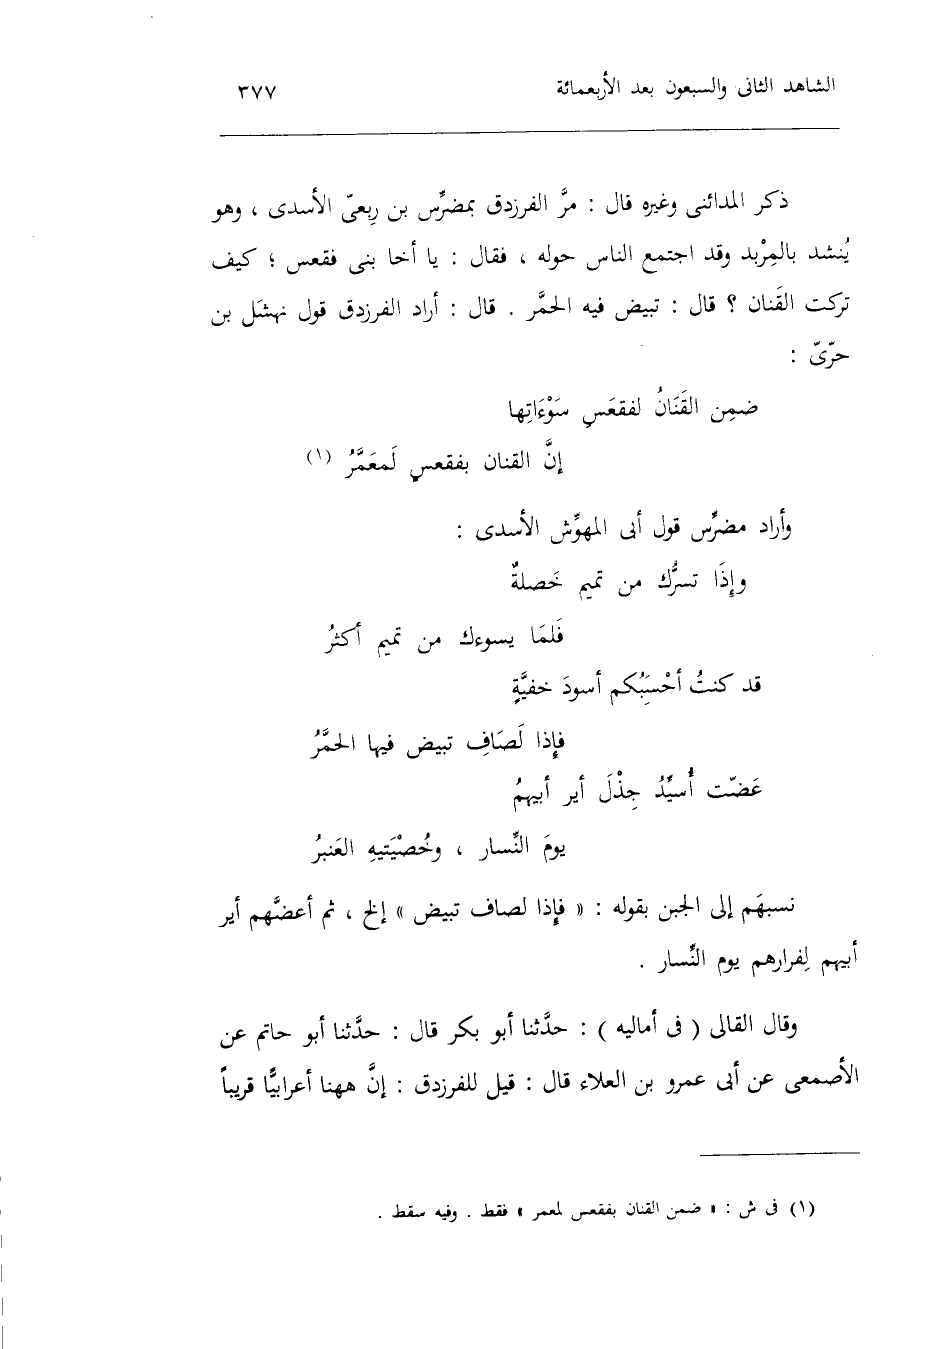 الشاهد الثانى والسبعون بعد الأربعمائة ٣٧٧
ذكر المدائنى وغيره قال : مرَّ الفرزدق بمضرِّس بن رِبعىّ الأسدى ، وهو
يُنشد بالمِرْبد وقد اجتمع الناس حوله ، فقال : يا أخا بنى فقعس ؛ كيف
تركت القَنان ؟ قال : تبيض فيه الحمَّر . قال : أراد الفرزدق قول نهشَل بن
حرّىّ :
ضمِن القَنَانُ لفقعَسِ سَوْءَاتِها
إنَّ القنان بفقعسٍ لَمعَمَّرُ (١)
وأراد مضرِّس قول أبى المهوِّش الأسدى :
وإِذَا تسرُّك من تميم خَصلةٌ
فَلمَا يسوءك من تميم أكثرُ
قد كنتُ أحْسَِبُكم أسودَ خفيَّةٍ
فإِذا لَصَافِ تبيض فيها الحمَّرُ
عَضّت أُسيِّدُ جِذْلَ أير أبيهمُ
يومَ النِّسار ، وخُصْيَتيهِ العَنبرُ
نسبهَم إلى الجبن بقوله : « فإِذا لصاف تبيض » إلخ ، ثم أعضَّهم أير
أبيهم لِفرارهم يوم النِّسار .
وقال القالى ( فى أماليه ) : حدَّثنا أبو بكر قال : حدَّثنا أبو حاتم عن
الأصمعى عن أبى عمرو بن العلاء قال : قيل للفرزدق : إنَّ ههنا أعرابيًّا قريباً
(١) فى ش : « ضمن القنان بفقعس لمعمر » فقط . وفيه سقط .